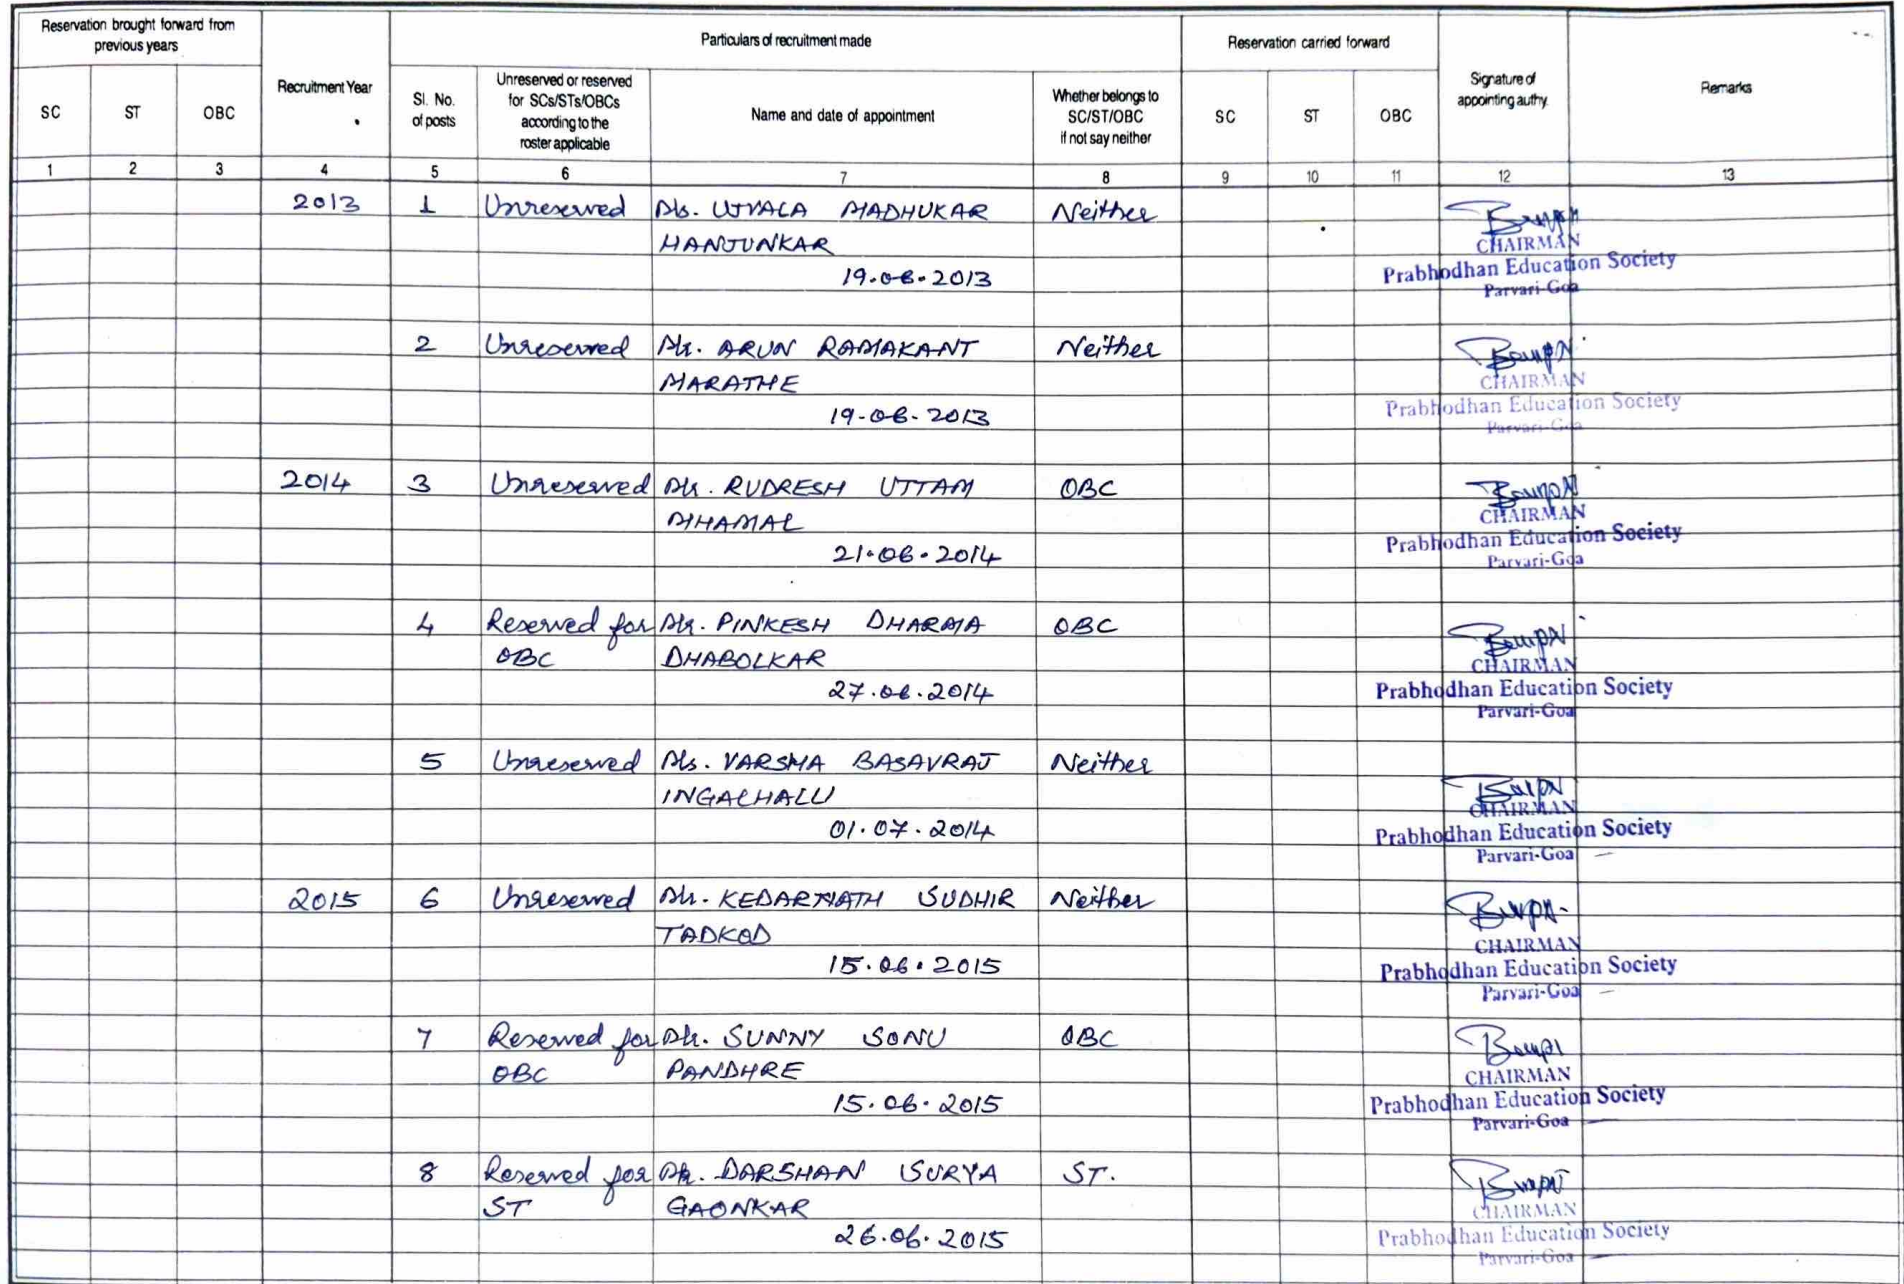 Reservation brought forward from previous years
Recruitment Year
Particulars of recruitment made
Reservation carried forward
Signature of appointing authy.
Remarks
SC ST OBC
Sl. No. of posts
Unreserved or reserved for SCs/STs/OBCs according to the roster applicable
Name and date of appointment
Whether belongs to SC/ST/OBC if not say neither
SC ST OBC
1 2 3 4 5 6 7 8 9 10 11 12 13
2013 1 Unreserved Ms. UJVALA MADHUKAR Neither
HANJUNKAR
19.06.2013
CHAIRMAN
Prabhodhan Education Society
Parvari-Goa
2 Unreserved Mr. ARUN RAMAKANT Neither
MARATHE
19-06-2013
CHAIRMAN
Prabhodhan Education Society
Parvari-Goa
2014 3 Unreserved Mr. RUDRESH UTTAM OBC
MHAMAL
21.06.2014
CHAIRMAN
Prabhodhan Education Society
Parvari-Goa
4 Reserved for Mr. PINKESH DHARMA OBC
OBC DHABOLKAR
27.06.2014
CHAIRMAN
Prabhodhan Education Society
Parvari-Goa
5 Unreserved Ms. VARSHA BASAVRAJ Neither
INGALHALLI
01.07.2014
CHAIRMAN
Prabhodhan Education Society
Parvari-Goa
2015 6 Unreserved Mr. KEDARNATH SUDHIR Neither
TADKOD
15.06.2015
CHAIRMAN
Prabhodhan Education Society
Parvari-Goa
7 Reserved for Mr. SUNNY SONU OBC
OBC PANDHRE
15.06.2015
CHAIRMAN
Prabhodhan Education Society
Parvari-Goa
8 Reserved for Mr. DARSHAN SURYA ST.
ST GAONKAR
26.06.2015
CHAIRMAN
Prabhodhan Education Society
Parvari-Goa